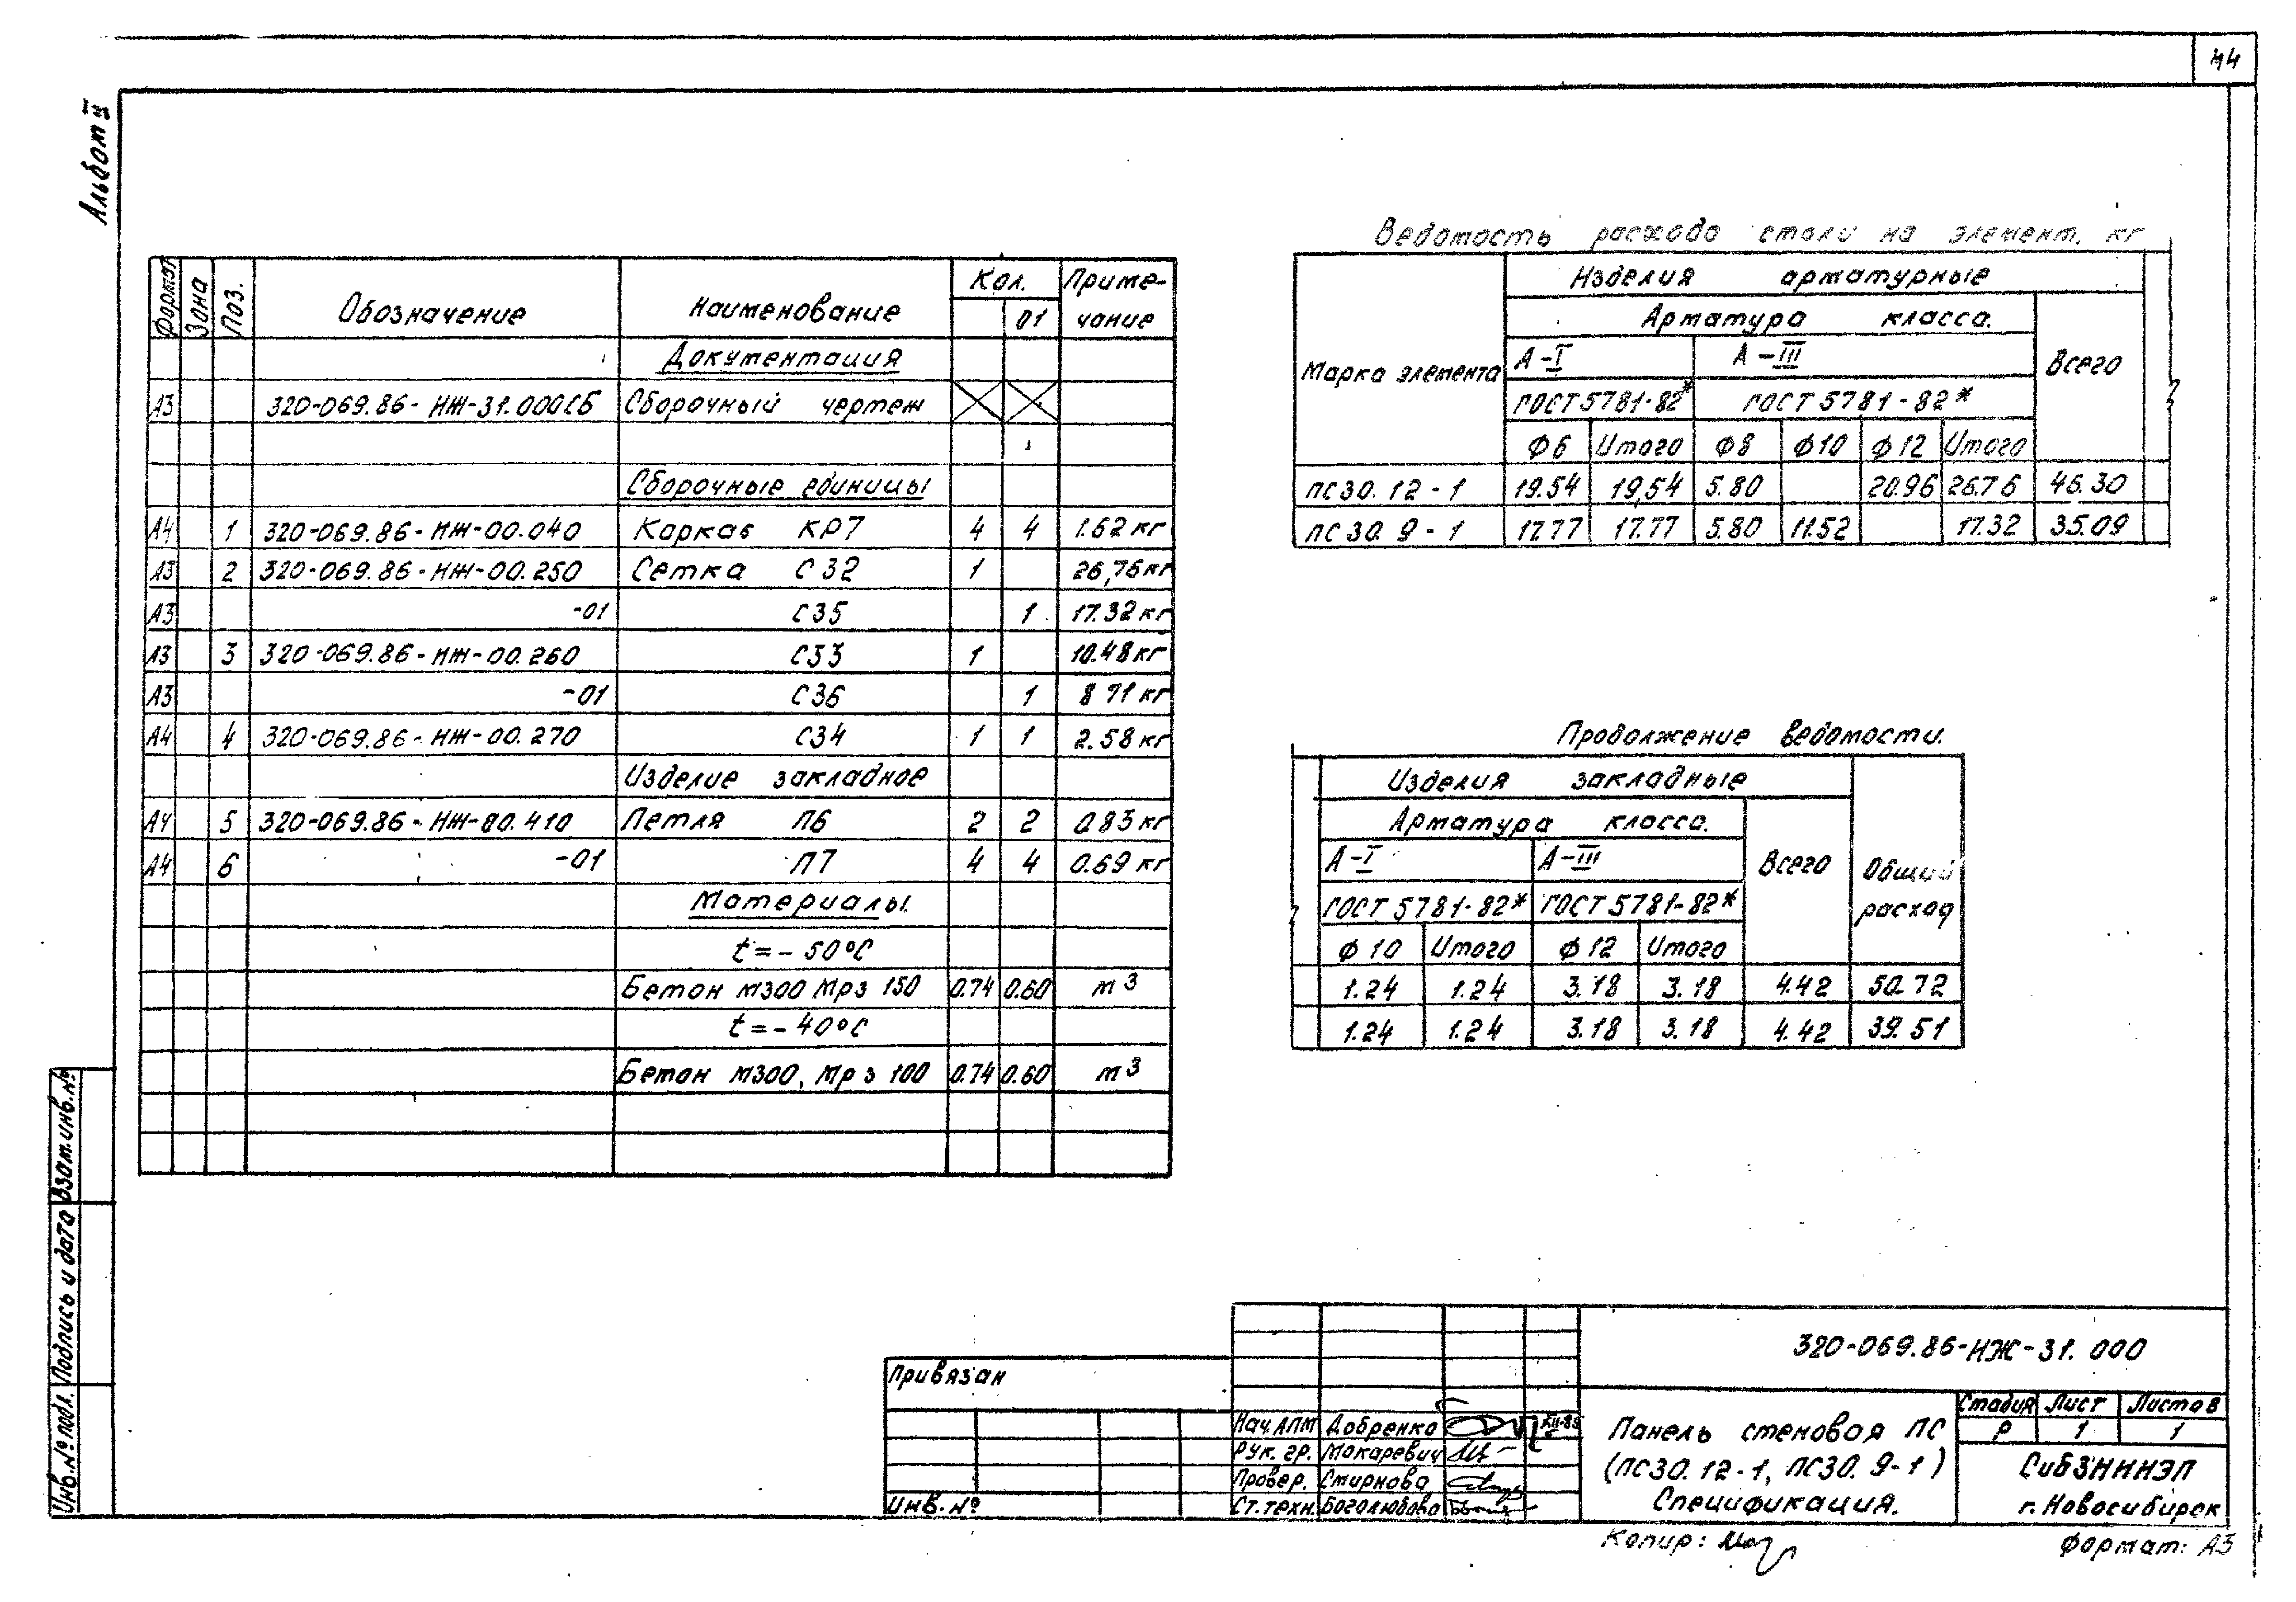 44
Альбом II
Формат Зона Поз. Обозначение Наименование Кол. Приме-
01 чание
Документация
А3 320-069.86-НЖ-31.000СБ Сборочный чертеж
Сборочные единицы
А4 1 320-069.86-НЖ-00.040 Каркас КР7 4 4 1.62 кг
А3 2 320-069.86-НЖ-00.250 Сетка С32 1 26,76 кг
А3 -01 С35 1 17.32 кг
А3 3 320-069.86-НЖ-00.260 С33 1 10.48 кг
А3 -01 С36 1 8 71 кг
А4 4 320-069.86-НЖ-00.270 С34 1 1 2.58 кг
Изделие закладное
А4 5 320-069.86-НЖ-00.410 Петля П6 2 2 0.83 кг
А4 6 -01 П7 4 4 0.69 кг
Материалы.
t=-50°С
Бетон М300 Мрз 150 0.74 0.60 м3
t=-40°С
Бетон М300, Мрз 100 0.74 0.60 м3
Ведомость расхода стали на элемент, кг
Марка элемента Изделия арматурные
Арматура класса. Всего
А-I А-III
ГОСТ 5781-82* ГОСТ 5781-82*
Ф6 Итого Ф8 Ф10 Ф12 Итого
ПС30.12-1 19.54 19,54 5.80 20.96 26.76 46.30
ПС30.9-1 17.77 17.77 5.80 11.52 17.32 35.09
Продолжение ведомости.
Изделия закладные Общий расход
Арматура класса. Всего
А-I А-III
ГОСТ 5781-82* ГОСТ 5781-82*
Ф10 Итого Ф12 Итого
1.24 1.24 3.18 3.18 4.42 50.72
1.24 1.24 3.18 3.18 4.42 39.51
Взам.инв.№
Подпись и дата
Инв.№ подл.
Привязан
Инв.№
320-069.86-НЖ-31.000
Нач.АПМ Добренко XII-85
Рук. гр. Макаревич
Провер. Смирнова
Ст.техн. Боголюбова
Панель стеновая ПС
(ПС30.12-1, ПС30.9-1)
Спецификация.
Стадия Лист Листов
Р 1 1
СибЗНИИЭП
г.Новосибирск
Копир:
Формат: А3